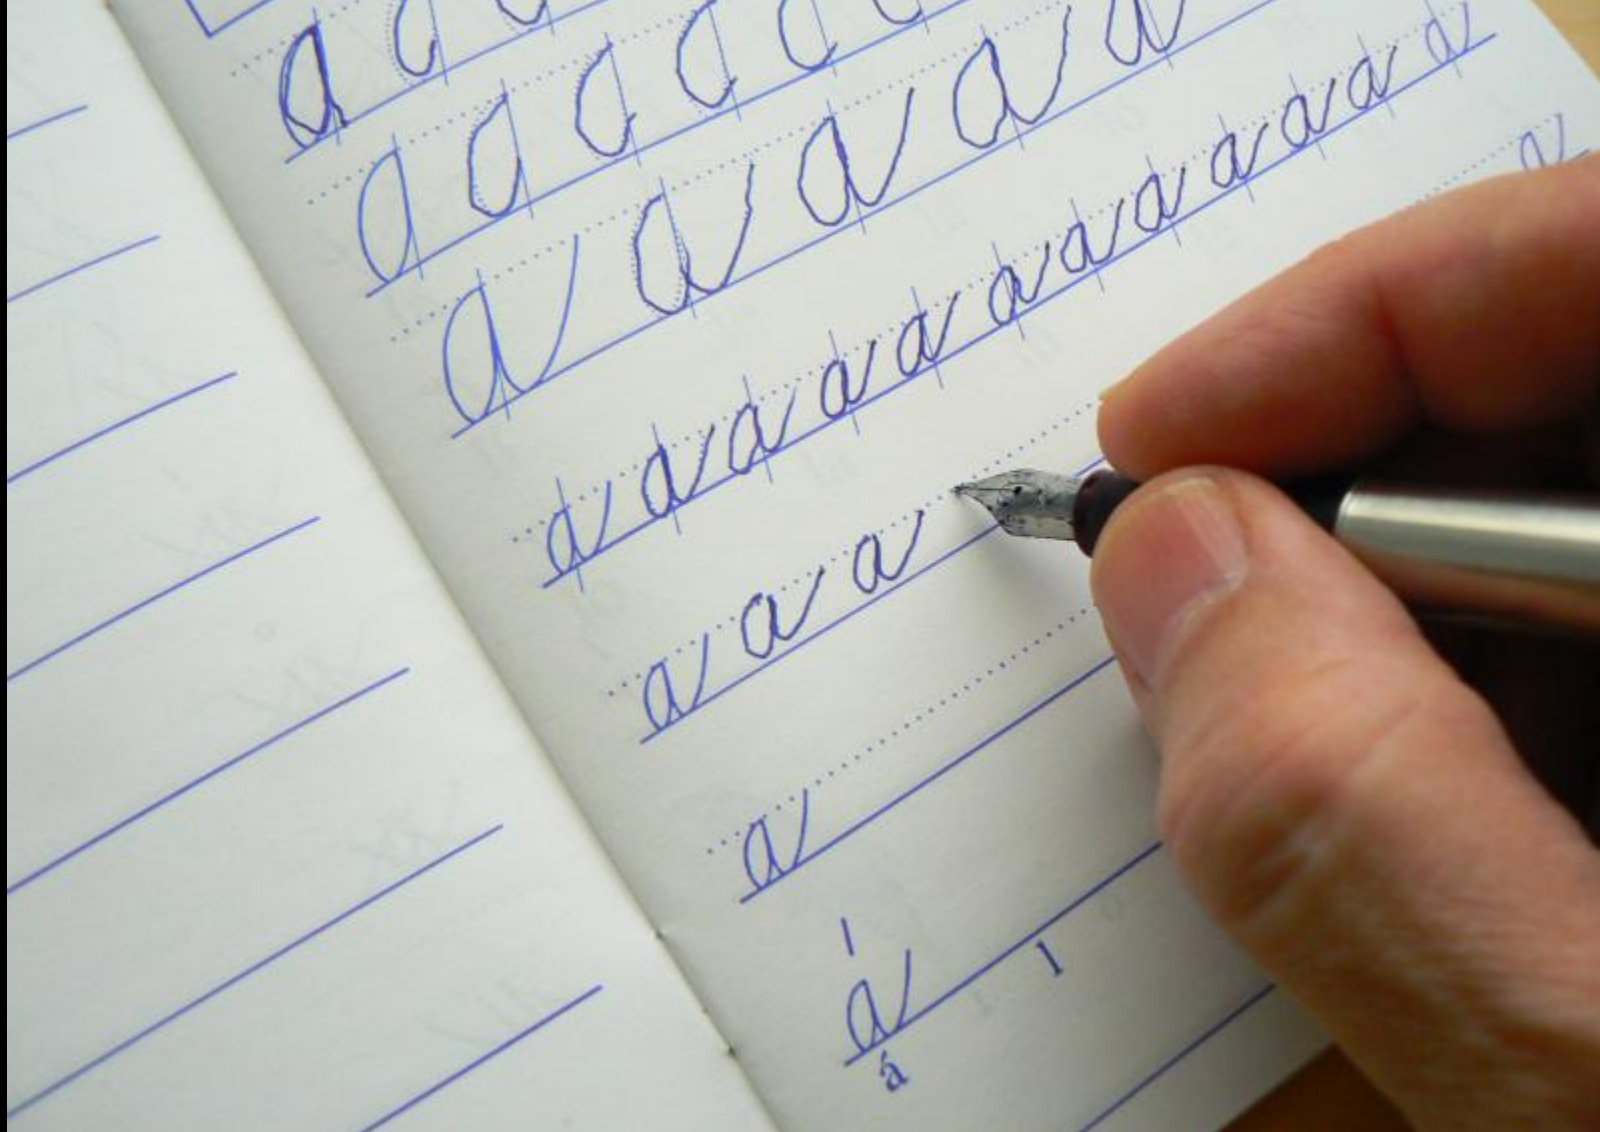 a
a a a a a
a a a a a
a a a a a a a a a a a a
a a a a
a
á
á